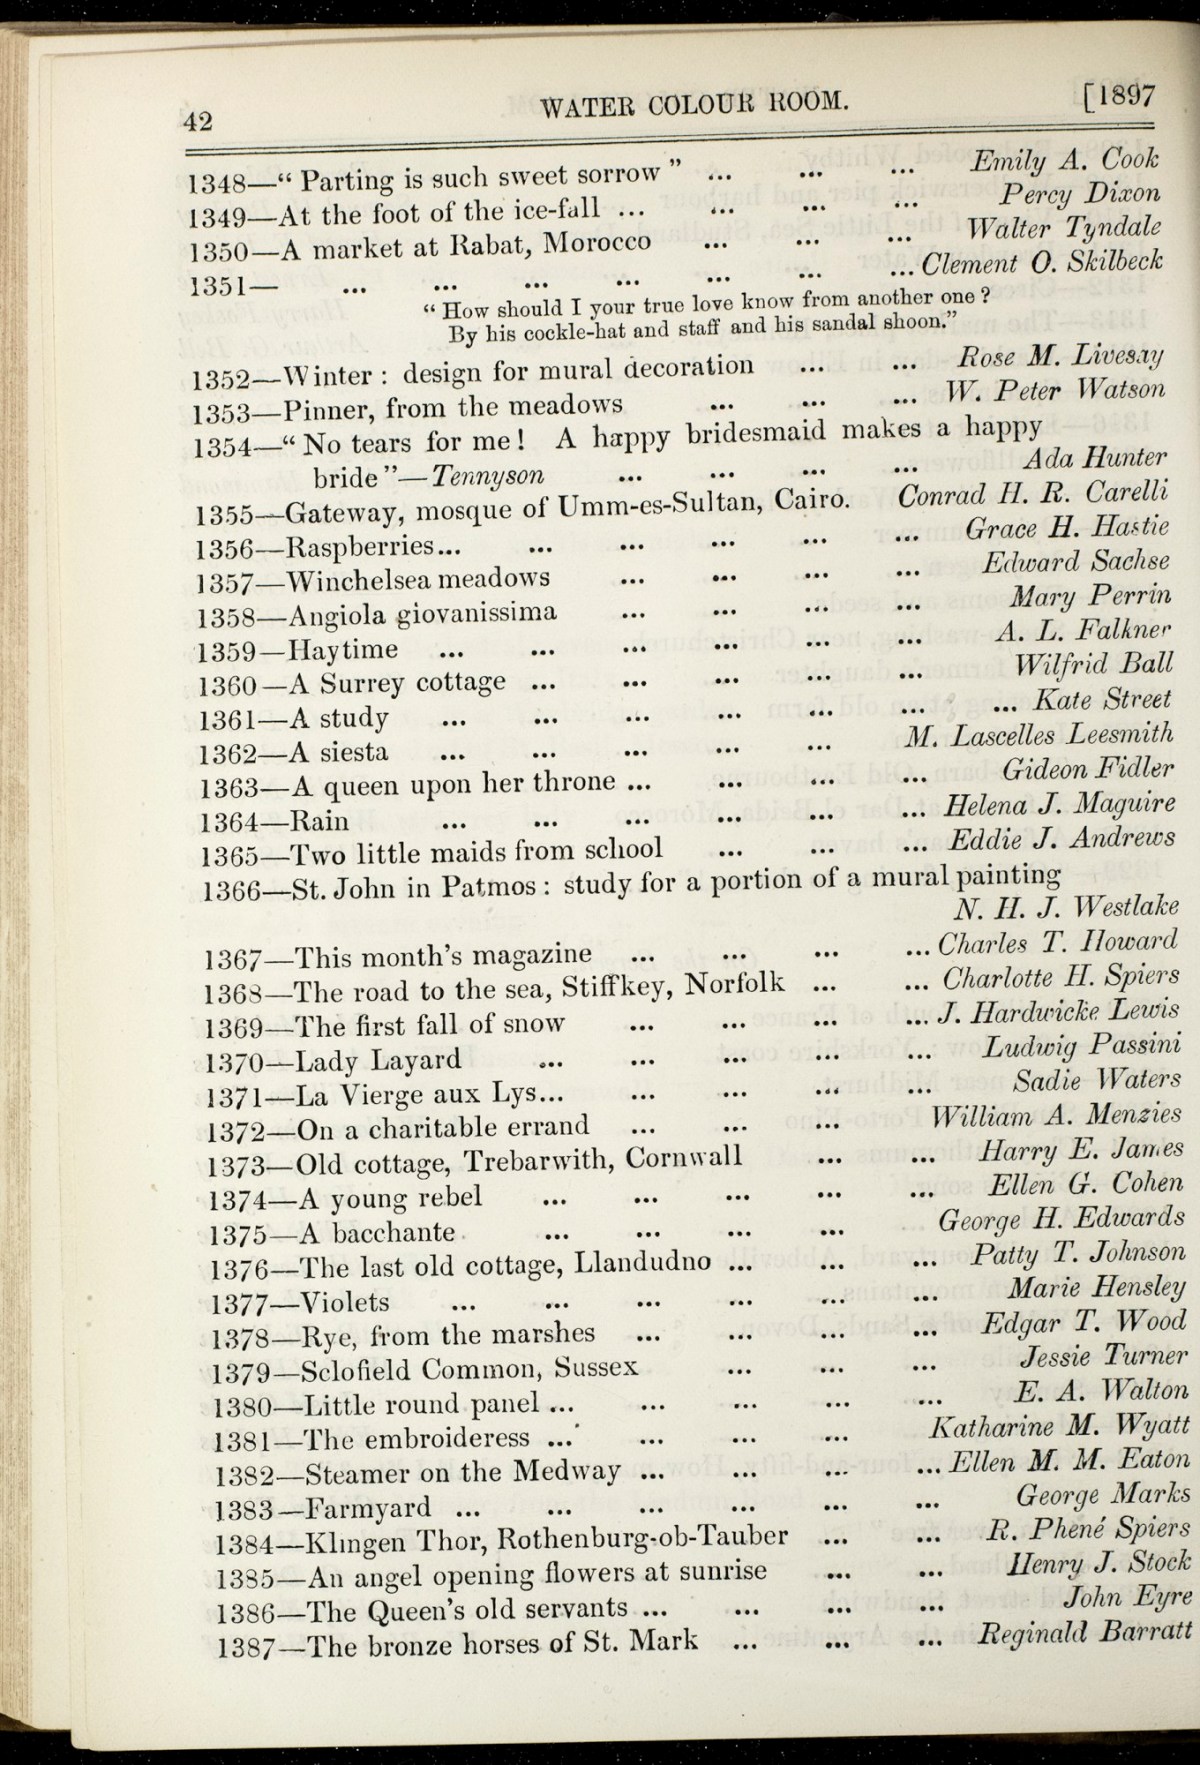 42 WATER COLOUR ROOM. [1897
1348—“ Parting is such sweet sorrow ” ... ... ... Emily A. Cook
1349—At the foot of the ice-fall ... ... ... ... Percy Dixon
1350—A market at Rabat, Morocco ... ... ... Walter Tyndale
1351— ... ... ... ... ... ... ... Clement O. Skilbeck
“ How should I your true love know from another one ?
By his cockle-hat and staff and his sandal shoon.”
1352—Winter : design for mural decoration ... ... Rose M. Livesay
1353—Pinner, from the meadows ... ... ... W. Peter Watson
1354—“ No tears for me ! A happy bridesmaid makes a happy
bride ”—Tennyson ... ... ... ... Ada Hunter
1355—Gateway, mosque of Umm-es-Sultan, Cairo. Conrad H. R. Carelli
1356—Raspberries... ... ... ... ... ... Grace H. Hastie
1357—Winchelsea meadows ... ... ... ... Edward Sachse
1358—Angiola giovanissima ... ... ... ... Mary Perrin
1359—Haytime ... ... ... ... ... ... A. L. Falkner
1360—A Surrey cottage ... ... ... ... ... Wilfrid Ball
1361—A study ... ... ... ... ... ... ... Kate Street
1362—A siesta ... ... ... ... ... M. Lascelles Leesmith
1363—A queen upon her throne ... ... ... ... Gideon Fidler
1364—Rain ... ... ... ... ... ... Helena J. Maguire
1365—Two little maids from school ... ... ... Eddie J. Andrews
1366—St. John in Patmos : study for a portion of a mural painting
N. H. J. Westlake
1367—This month’s magazine ... ... ... ... Charles T. Howard
1368—The road to the sea, Stiffkey, Norfolk ... ... Charlotte H. Spiers
1369—The first fall of snow ... ... ... ... J. Hardwicke Lewis
1370—Lady Layard ... ... ... ... ... Ludwig Passini
1371—La Vierge aux Lys... ... ... ... ... Sadie Waters
1372—On a charitable errand ... ... ... William A. Menzies
1373—Old cottage, Trebarwith, Cornwall ... ... Harry E. James
1374—A young rebel ... ... ... ... ... Ellen G. Cohen
1375—A bacchante ... ... ... ... George H. Edwards
1376—The last old cottage, Llandudno ... ... ... Patty T. Johnson
1377—Violets ... ... ... ... ... ... Marie Hensley
1378—Rye, from the marshes ... ... ... ... Edgar T. Wood
1379—Sclofield Common, Sussex ... ... ... Jessie Turner
1380—Little round panel ... ... ... ... ... E. A. Walton
1381—The embroideress ... ... ... ... Katharine M. Wyatt
1382—Steamer on the Medway ... ... ... ... Ellen M. M. Eaton
1383—Farmyard ... ... ... ... ... ... George Marks
1384—Klingen Thor, Rothenburg-ob-Tauber ... ... R. Phené Spiers
1385—An angel opening flowers at sunrise ... ... Henry J. Stock
1386—The Queen’s old servants ... ... ... ... John Eyre
1387—The bronze horses of St. Mark ... ... ... Reginald Barratt